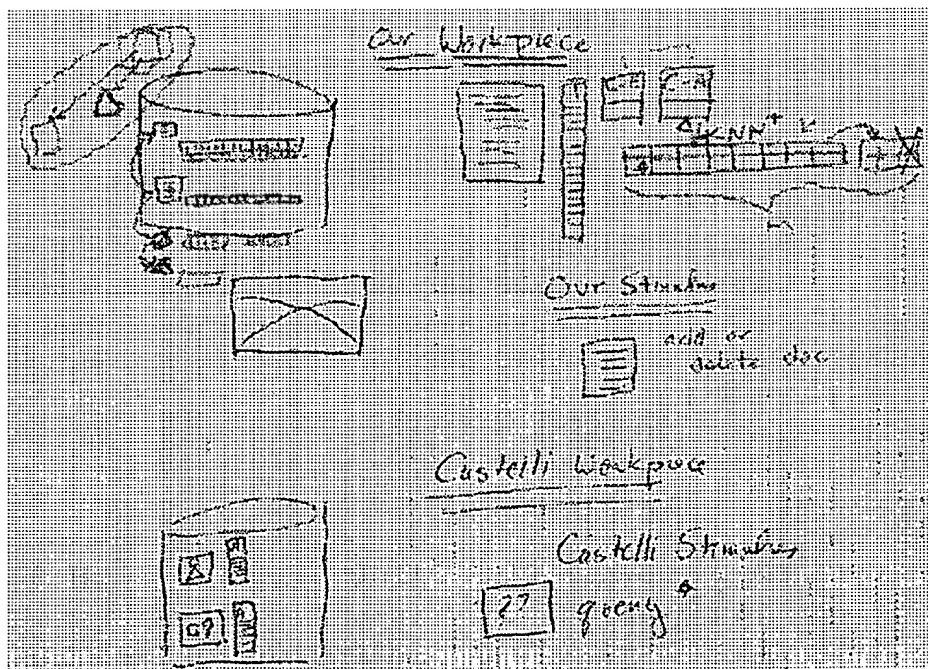 Our Workpiece
C-A
KNN+
Our Stimulus
add or
delete doc
Castelli Workpiece
Castelli Stimulus
??
query